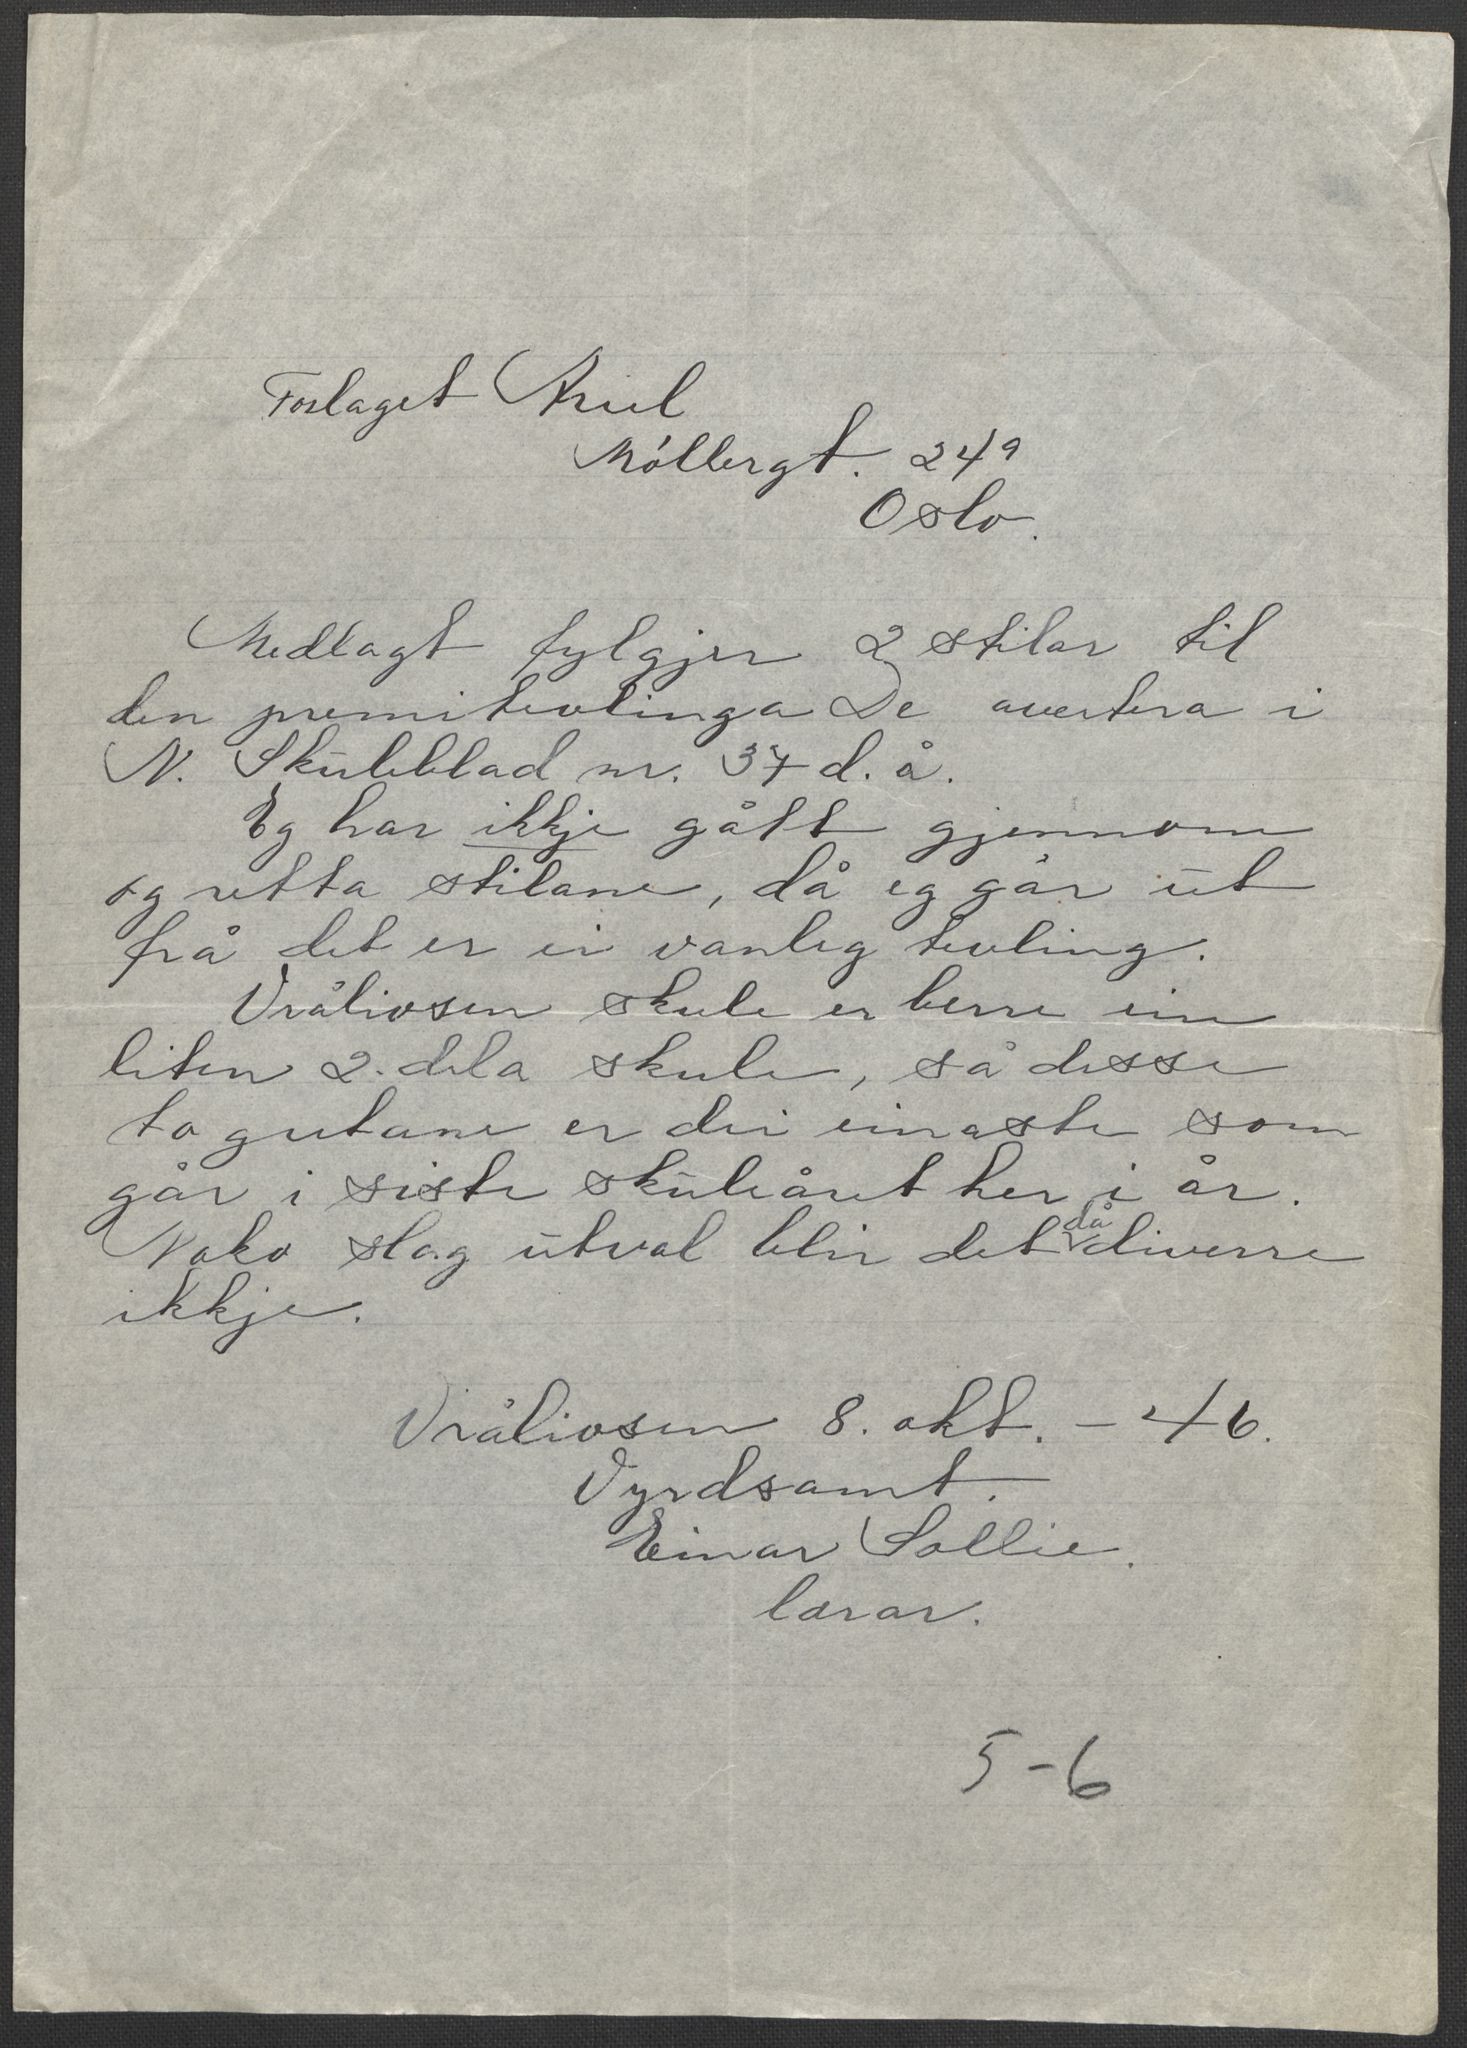 Forlaget Ariel
Møllergt. 24a
Oslo.
Medlagt fylgjer 2 stilar til
den premitevlinga De averterа i
N. Skuleblad nr. 37 d. å.
Eg har ikkje gått gjennom
og retta stilane, då eg går ut
frå det er ei vanleg tevling.
Vråliosen skule er berre ein
liten 2. dela skule, så desse
to gutane er dei einaste som
går i siste skuleåret her i år.
Noko slag utval blir det då diverre
ikkje.
Vråliosen 8. okt. - 46.
Vyrdsamt.
Einar Sollie.
lærar.
5-6